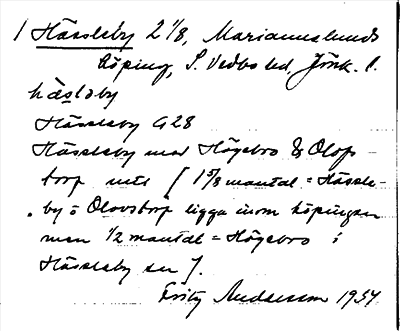 1 Hässleby 2 1/8, Mariannelunds
köping, S. Vedbo hd, Jönk. l.
hä̀sləby
Hässleby G28
Hässleby med Högebro & Olofs
torp mtl [1 5/8 mantal = Hässle-
by o Olovstorp ligga inom köpingen
men 1/2 mantal = Högebro i
Hässleby sn].
Fritz Andersson 1934